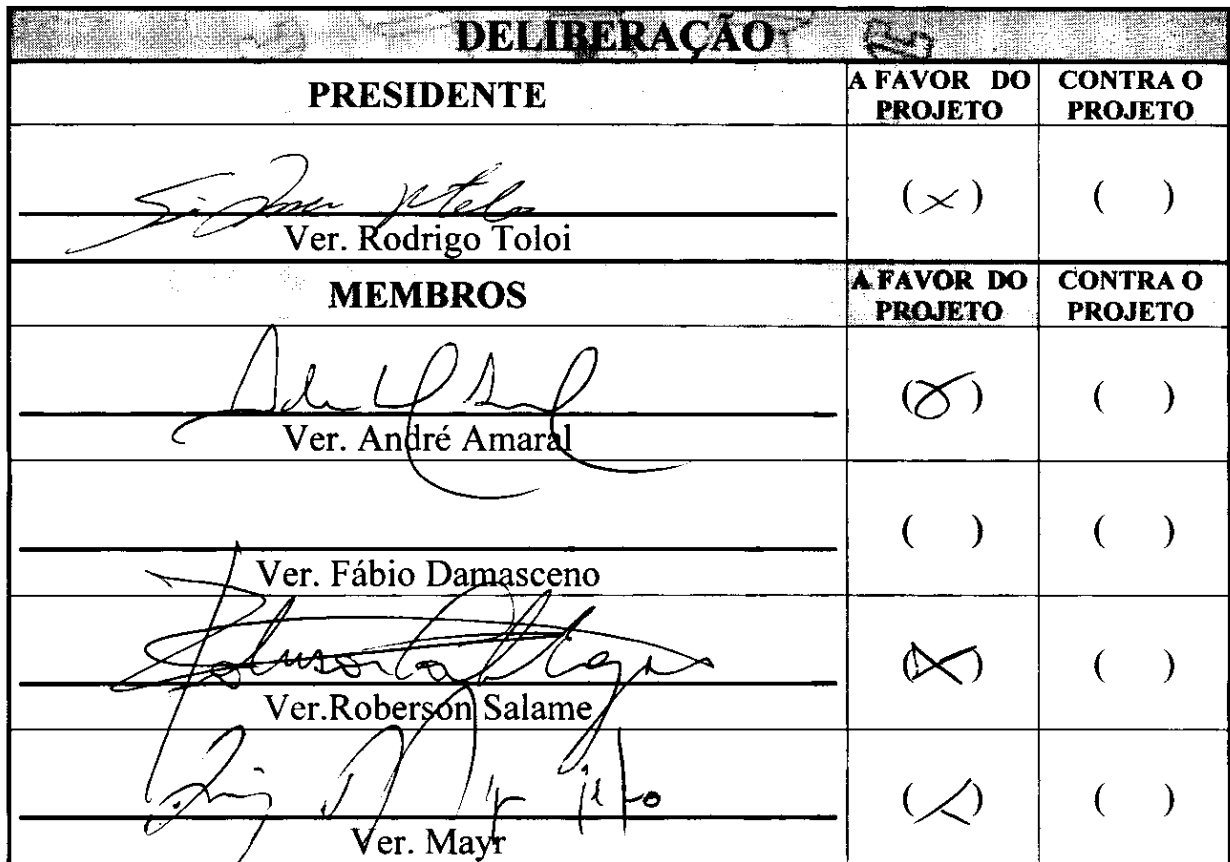 DELIBERAÇÃO
PRESIDENTE
A FAVOR DO PROJETO
CONTRA O PROJETO
(×) ( )
Ver. Rodrigo Toloi
MEMBROS
A FAVOR DO PROJETO
CONTRA O PROJETO
(X) ( )
Ver. André Amaral
( ) ( )
Ver. Fábio Damasceno
(X) ( )
Ver.Roberson Salame
(X) ( )
Ver. Mayr